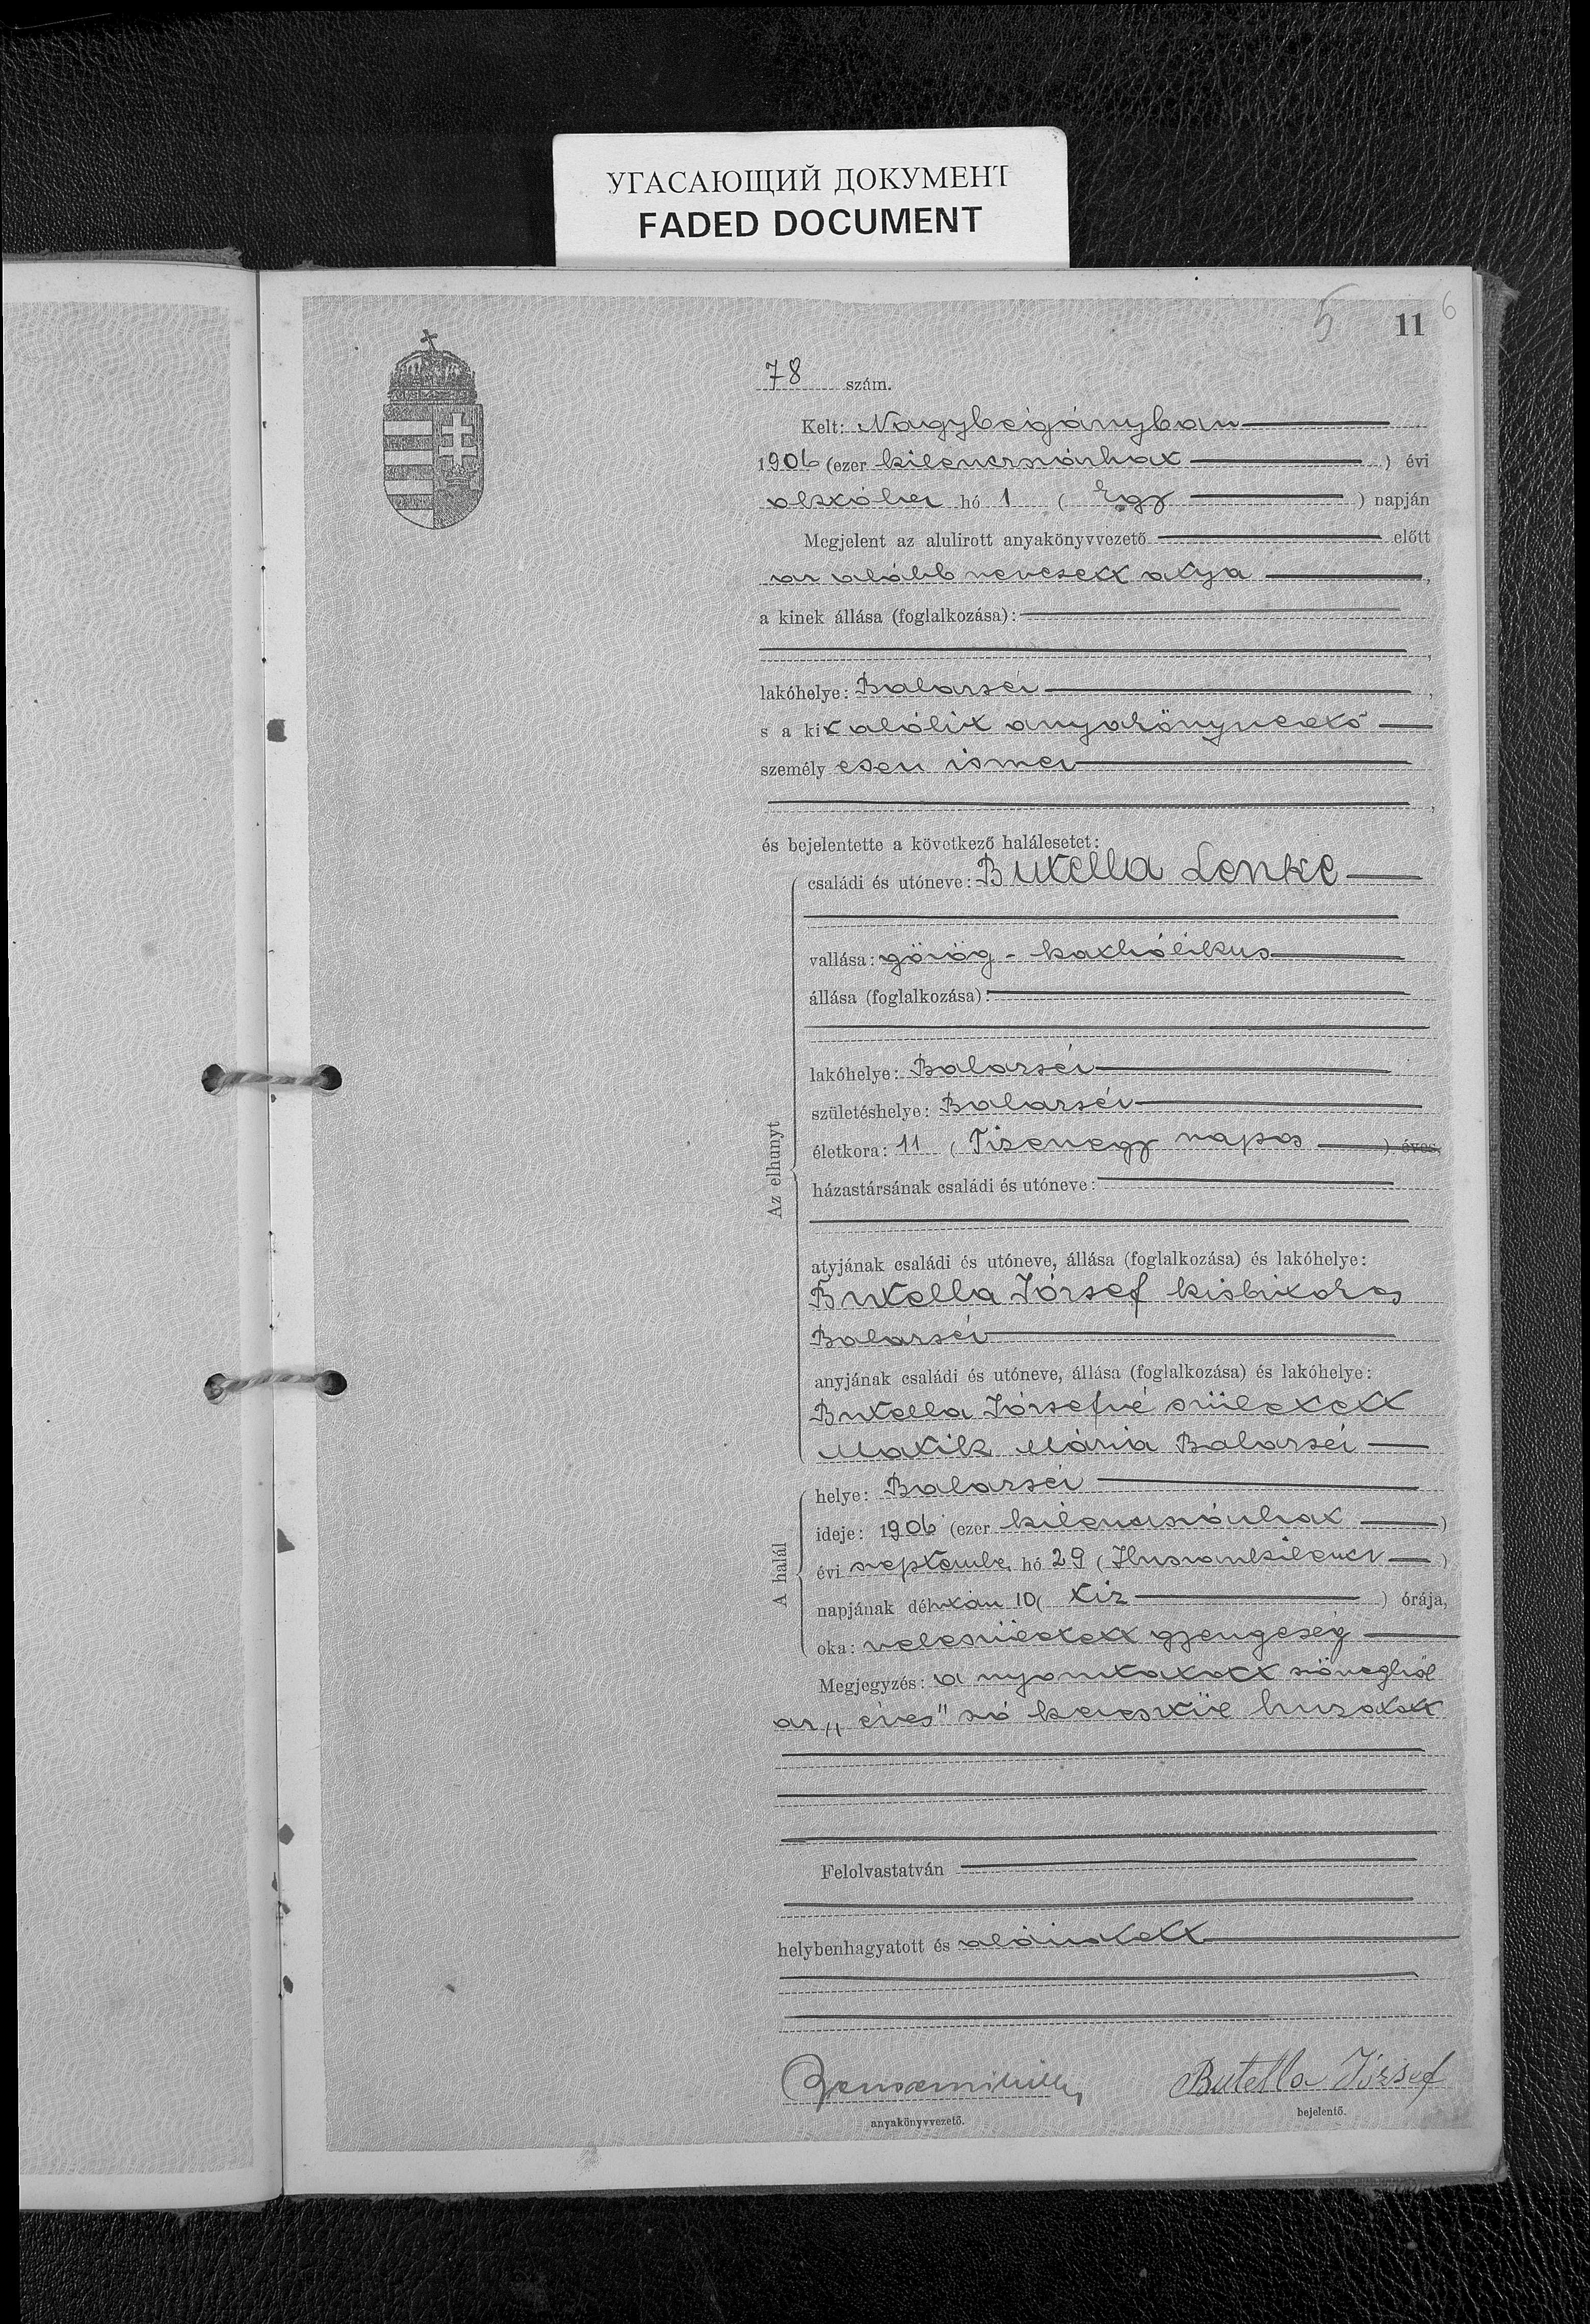 УГАСАЮЩИЙ ДОКУМЕНТ
FADED DOCUMENT
5
6
11
78 szám.
Kelt: Nagybégányban
1906 (ezer kilencszázhat ) évi
október hó 1 ( Egy ) napján
Megjelent az alulirott anyakönyvvezető előtt
az alább nevezett atya ,
a kinek állása (foglalkozása):
,
lakóhelye: Balazsér ,
s a kit alólirt anyakönyvvezető
személyesen ismer
,
és bejelentette a következő halálesetet:
Az elhunyt
családi és utóneve: Butella Lenke
vallása: görög-katholikus
állása (foglalkozása):
lakóhelye: Balazsér
születéshelye: Balazsér
életkora: 11 ( Tizenegy napos ) éves,
házastársának családi és utóneve:
atyjának családi és utóneve, állása (foglalkozása) és lakóhelye:
Butella József kisbirtokos
Balazsér
anyjának családi és utóneve, állása (foglalkozása) és lakóhelye:
Butella Józsefné született
Matik Mária Balazsér
A halál
helye: Balazsér
ideje: 1906 (ezer kilencszázhat )
évi szeptember hó 29 ( Huszonkilencz )
napjának délután 10 ( tiz ) órája,
oka: veleszületett gyengeség
Megjegyzés: a nyomtatott szövegből
az „éves" szó keresztül huzatott
Felolvastatván
helybenhagyatott és aláiratott
anyakönyvvezető.
Butella József
bejelentő.